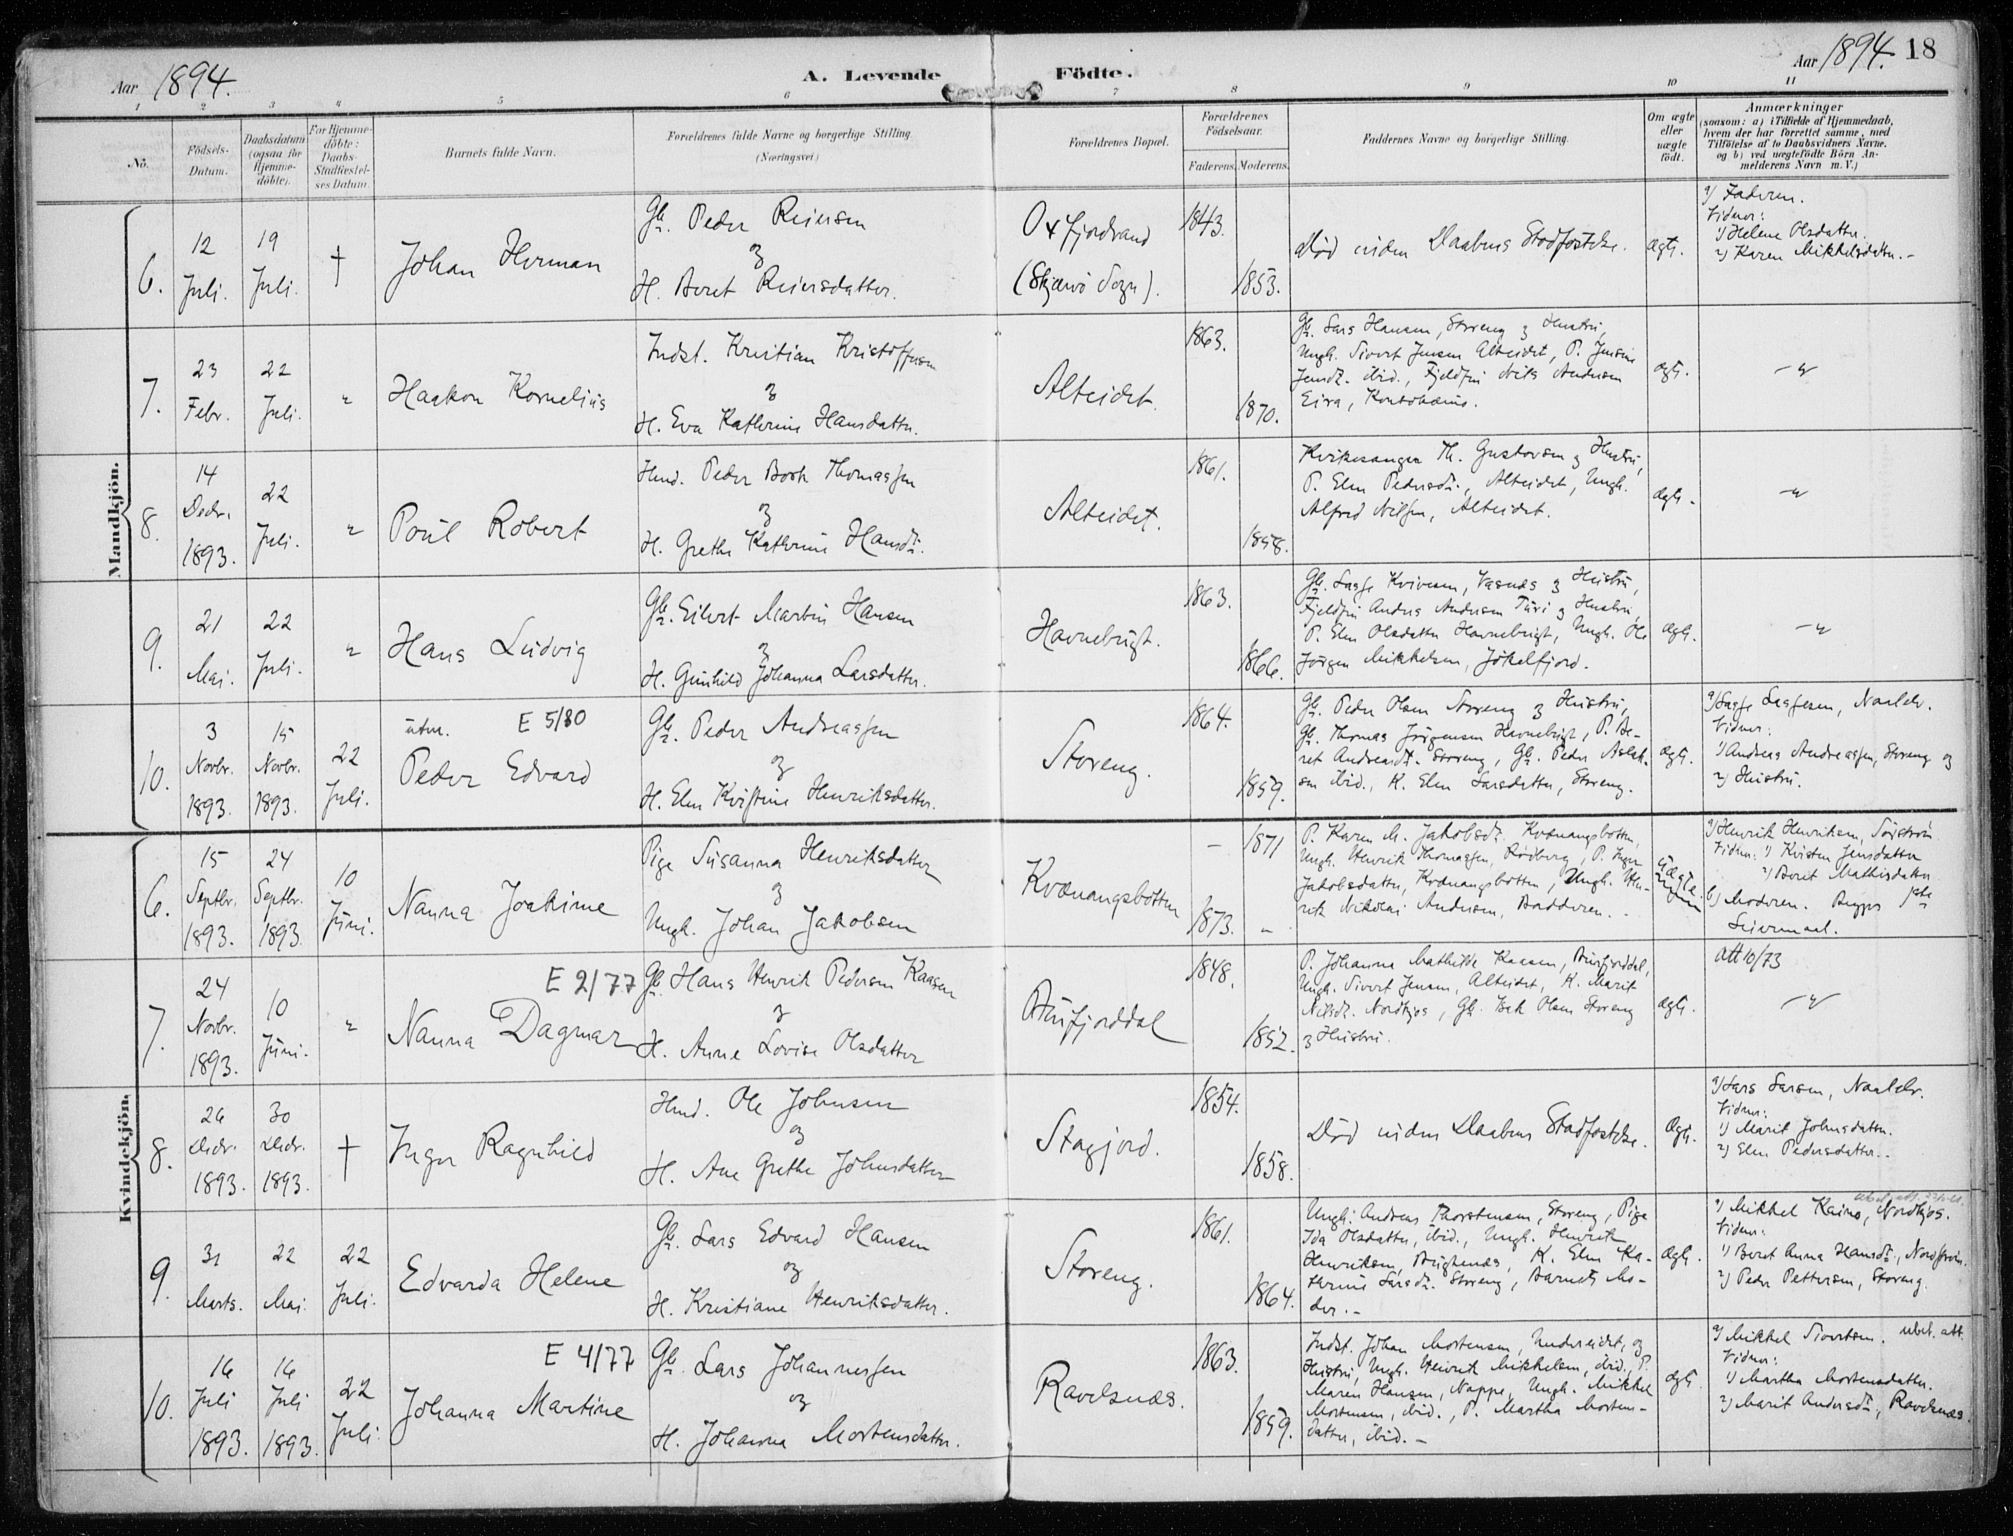 Aar 1894.
A. Levende Födte.
Aar 1894. 18
1 2 3 4 5 6 7 8 9 10 11
No.
Födsels-
Datum.
Daabsdatum
(ogsaa for
Hjemme-
döbte).
For Hjemme-
döbte:
Daabs-
Stadfæstel-
ses Datum.
Barnets fulde Navn.
Forældrenes fulde Navne og borgerlige Stilling.
(Næringsvei)
Forældrenes Bopæl.
Forældrenes
Födselsaar.
Faderens. Moderens.
Faddernes Navne og borgerlige Stilling.
Om ægte
eller
uægte
födt.
Anmærkninger
(saasom: a) i Tilfælde af Hjemmedaab,
hvem der har forrettet samme, med
Tilföielse af to Daabsvidners Navne,
og b) ved uægtefödte Börn An-
melderens Navn m. V.)
Mandkjön.
6.
12
Juli.
19
Juli.
†
Johan Herman
Gb. Peder Reiersen
og
H. Beret Reiersdatter.
Oxfjordvand
(Skjærvö Sogn).
1843.
1853.
Död inden Daabens Stadfæstelse.
ægte.
a) Faderen.
Vidner:
1) Helene Olsdatter.
2) Karen Mikkelsdatter.-
7.
23
Febr.
22
Juli.
"
Haakon Kornelius
Indst. Kristian Kristoffersen
og
H. Eva Kathrine Hansdatter.
Alteidet.
1863.
1870.
Gb. Lars Hansen, Storeng og Hustru,
Ungk. Sivert Jensen Alteidet, P. Jensine
Jensdt. ibid., Fjeldfin Nils Andersen
Eira, Koutokæino.
ægte.
- " -
8.
14
Decbr.
1893.
22
Juli.
"
Poul Robert
Hmd. Peder Bosk Thomassen
og
H. Grethe Kathrine Hansdt.
Alteidet.
1861.
1858.
Kirkesanger Th. Gustavsen og Hustru,
P. Elen Pedersdt., Alteidet, Ungk.
Alfred Nilsen, Alteidet.
ægte.
- " -
9.
21
Mai.
22
Juli.
"
Hans Ludvig
Gb. Eilert Martin Hansen
og
H. Gunhild Johanna Larsdatter.
Havnebugt.
1863.
1866.
Gb. Lasse Kvivesen, Vasnæs og Hustru,
Fjeldfin Anders Andersen Turi og Hustru,
P. Elen Olsdatter Havnebugt, Ungk. Ole
Jörgen Mikkelsen, Jökelfjord.
ægte.
- " -
10.
3
Novbr.
1893.
15
Novbr.
1893.
22
Juli.
utm. E 5/80
Peder Edvard
Gb. Peder Andreassen
og
H. Elen Kristine Henriksdatter.
Storeng.
1864.
1859.
Gb. Peder Olsen Storeng og Hustru,
Gb. Thomas Jörgensen Havnebugt, P. Be-
ret Andreasdt. Storeng, Gb. Peder Aslak-
sen ibid., K. Elen Larsdatter, Storeng.
ægte.
a) Lasse Lassesen, Naalelv.
Vidner:
1) Andreas Andreassen, Storeng og
2) Hustru.
Kvindekjön.
6.
15
Septbr.
1893.
24
Septbr.
1893.
10
Juni.
Nanna Joakime
Pige Susanna Henriksdatter
og
Ungk. Johan Jakobsen
Kvænangsbotten
- 1871
1873. -
P. Karen M. Jakobsdt. Kvænangsbotten,
Ungk. Henrik Thomassen, Rödberg, P. Inger
Jakobsdatter, Kvænangsbotten, Ungk. Hen-
rik Nikolai Andersen, Badderen. -
uægte.
a) Henrik Henriksen, Sörström
Vidner: 1) Kirsten Jensdatter
2) Berit Mathisdatter
b) Moderen. Begges 1ste
Leiermaal.
7.
24
Novbr.
1893.
10
Juni.
"
E 2/77
Nanna Dagmar
Gb. Hans Henrik Pedersen Kaasen
og
H. Anne Lovise Olsdatter
Burfjorddal
1848.
1852.
P. Johanna Mathilde Kaasen, Burfjorddal,
Ungk. Sivert Jensen, Alteidet, K. Marit
Nilsdt. Nordkjos, Gb. Bek Olsen Storeng
og Hustru.
ægte.
att 10/73
- " -
8.
26
Decbr.
1893.
30
Decbr.
1893.
†
Inger Ragnhild
Hmd. Ole Johnsen
og
H. Ane Grethe Johnsdatter
Stagjord.
1854.
1858.
Död inden Daabens Stadfæstelse.
ægte.
a) Lars Larsen, Naalelv.
Vidner:
1) Marit Johnsdatter.
2) Elen Pedersdatter.
9.
31
Marts.
22
Mai.
22
Juli.
Edvarda Helene
Gb. Lars Edvard Hansen
og
H. Kristiane Henriksdatter.
Storeng.
1861.
1864.
Ungk. Andreas Thorstensen, Storeng, Pige
Ida Olsdatter, ibid., Ungk. Henrik
Henriksen, K. Elen Ka-
tarine Larsdt. Storeng, Barnets Mo-
der. -
ægte.
a) Mikkel Kaino, Nordkjos.
Vidner:
1) Beret Anna Hansdt.,
2) Peder Pettersen, Storeng.
10.
16
Juli
1893.
16
Juli
1893.
22
Juli.
E 4/77
Johanna Martine
Gb. Lars Johannessen
og
H. Johanna Mortensdatter.
Ravelsnæs.
1863.
1859.
Indst. Johan Mortensen, Undereidet, og
Hustru, Ungk. Henrik Mikkelsen, ibid., P.
Maren Hansen, Noppe, Ungk. Mikkel
Mortensen, ibid., P. Martha Mortens-
datter, ibid. -
ægte.
a) Mikkel Sivertsen. ubet. att.
Vidner:
1) Martha Mortensdatter.
2) Marit Andersdt., Ravelsnæs.